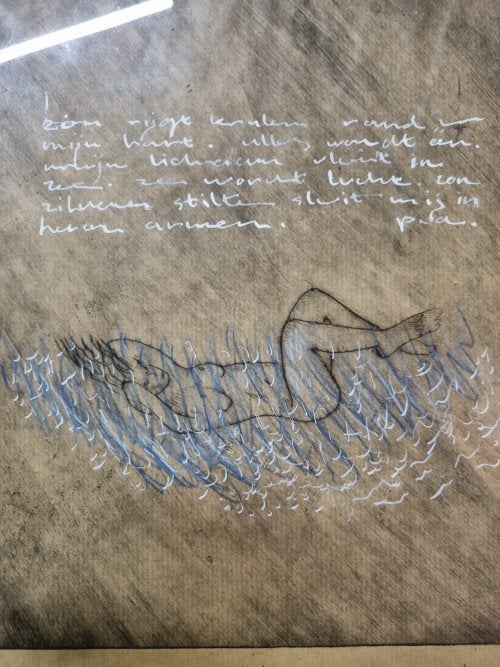 zon rijgt kralen rond
mijn hart. alles wordt één.
mijn lichaam vloeit in
zee. zee wordt lucht.
zilveren stilte sluit mij in
haar armen.